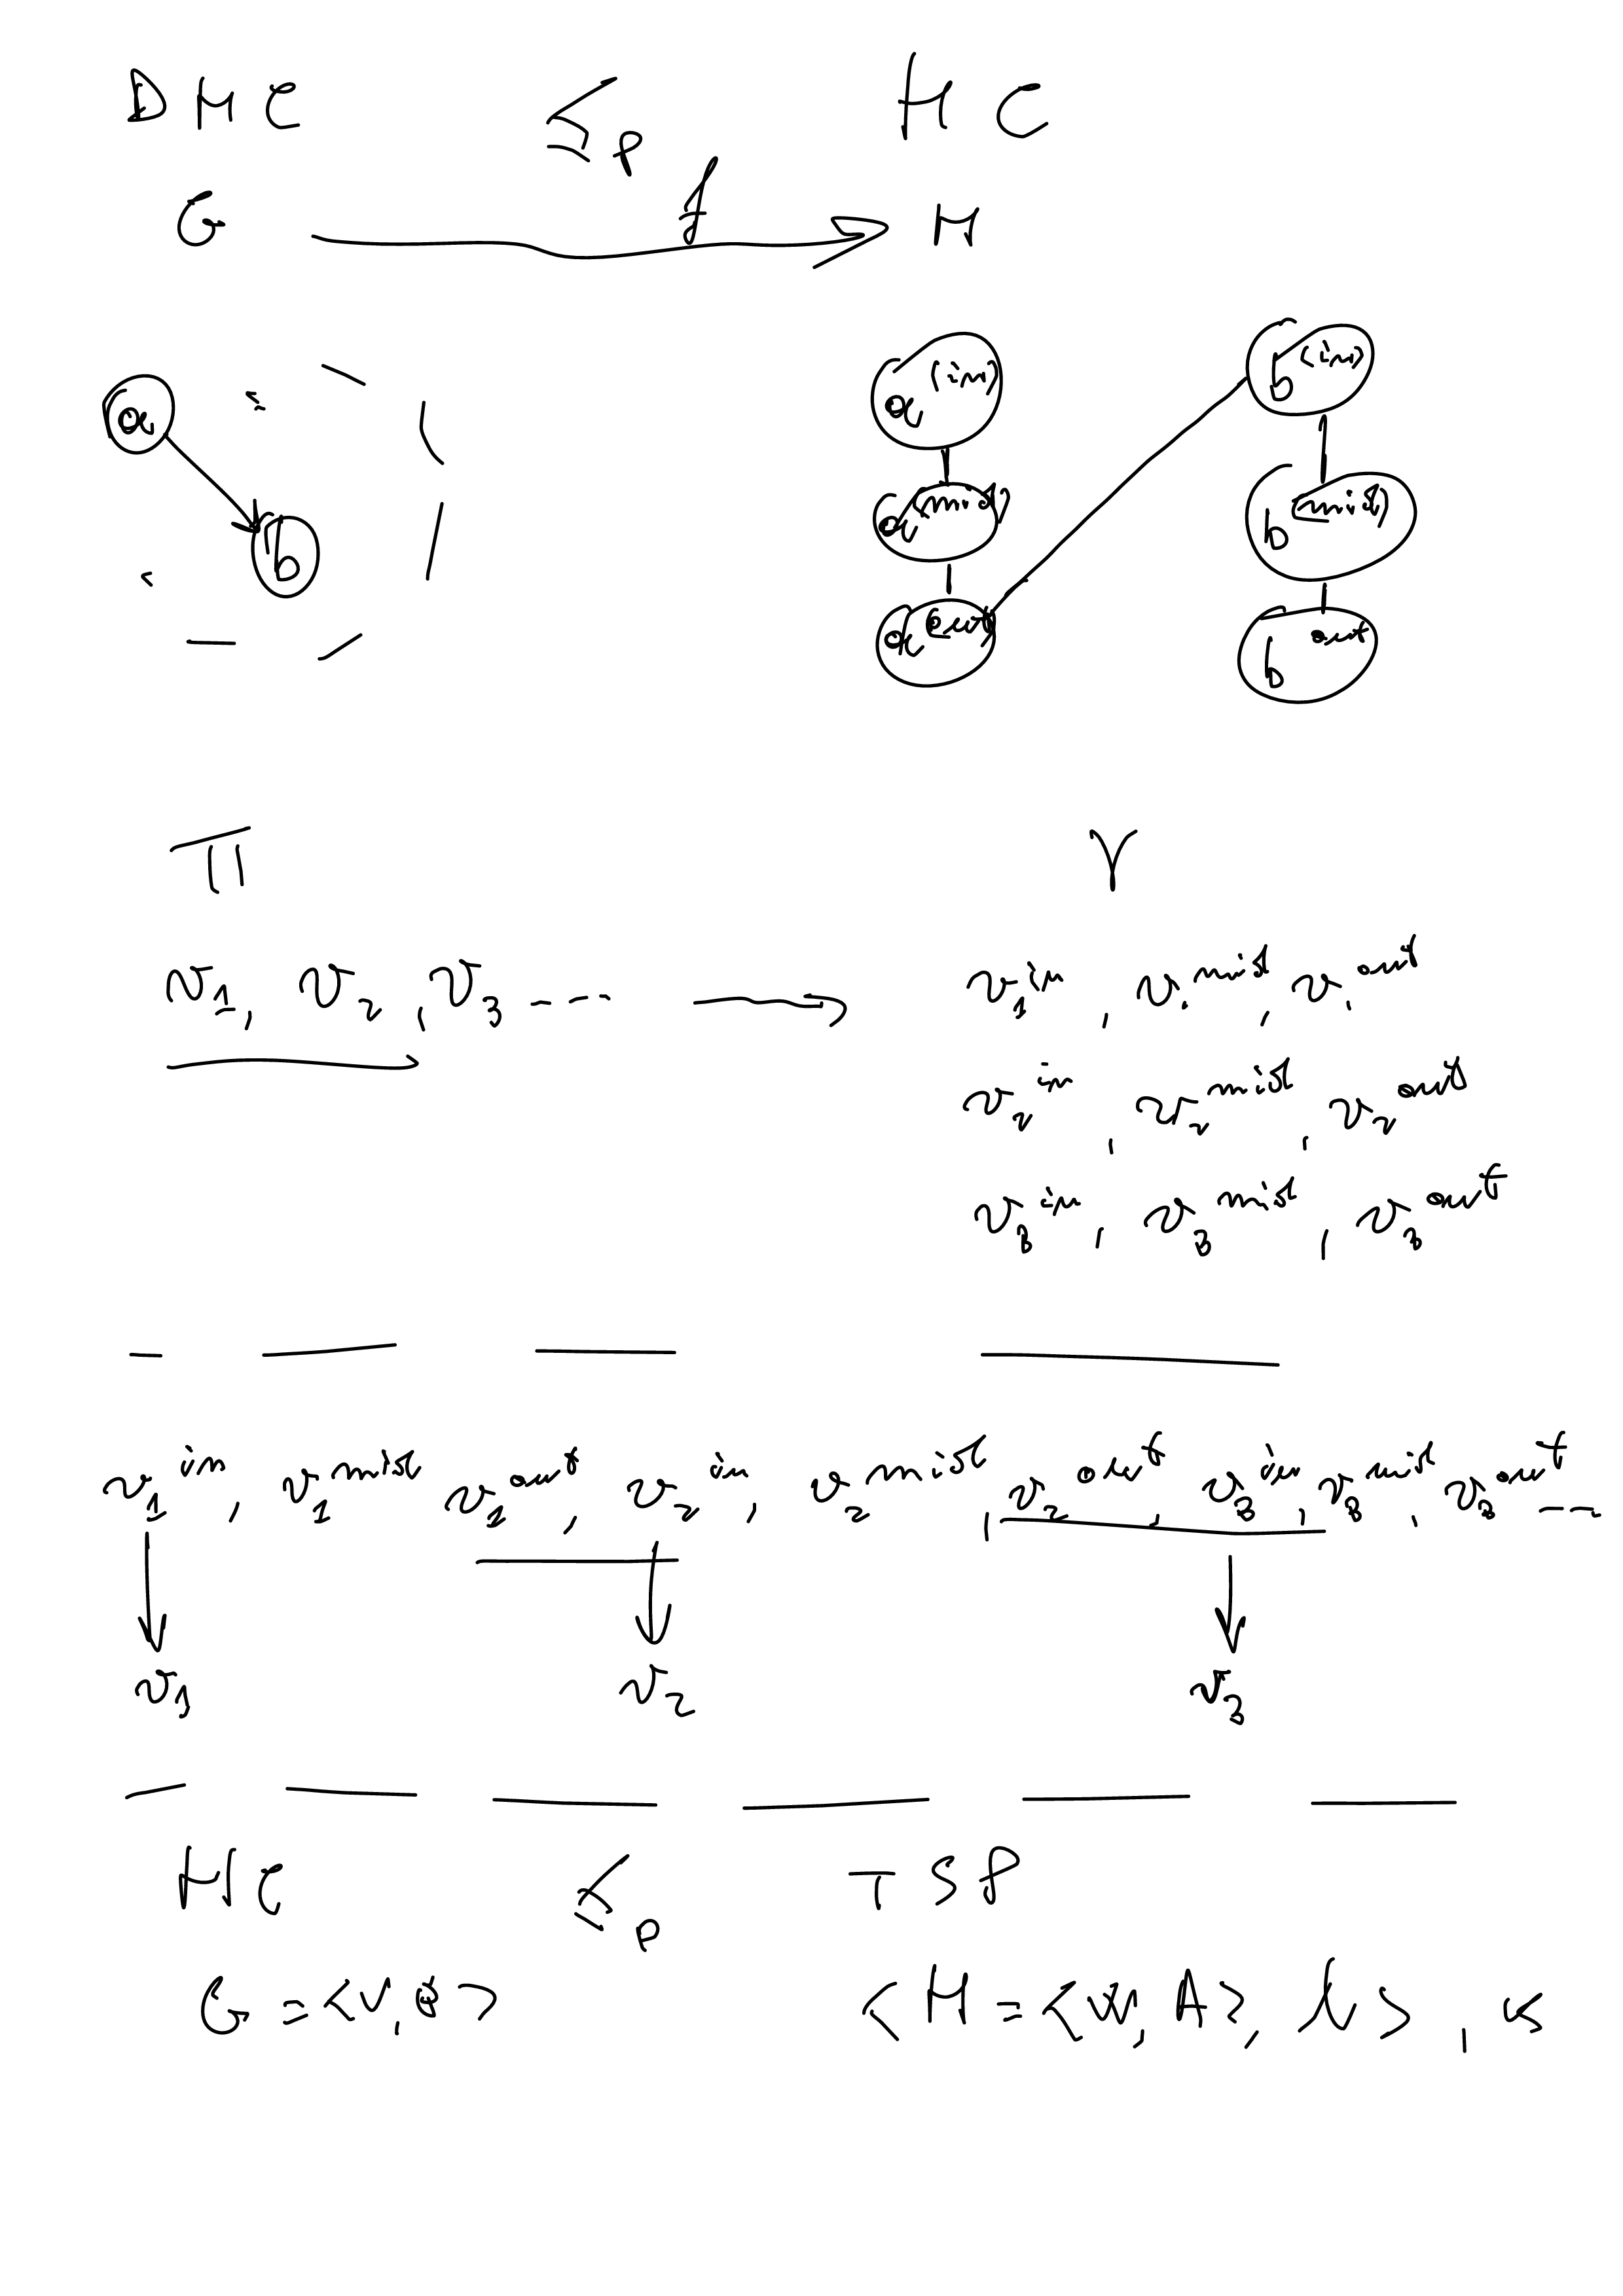 DHC ≤p HC
G f H
a a(in) b(in)
b a(mid) b(mid)
a(out) b out
Π γ
v1, v2, v3 ---- → v1 in, v1 mid, v1 out
v2 in, v2 mid, v2 out
v3 in, v3 mid, v3 out
v1 in, v1 mid v1 out, v2 in, v2 mid, v2 out, v3 in, v3 mid, v3 out ---
v1 v2 v3
HC ≤p TSP
G = <V, E> <H = <W, A>, l>, k